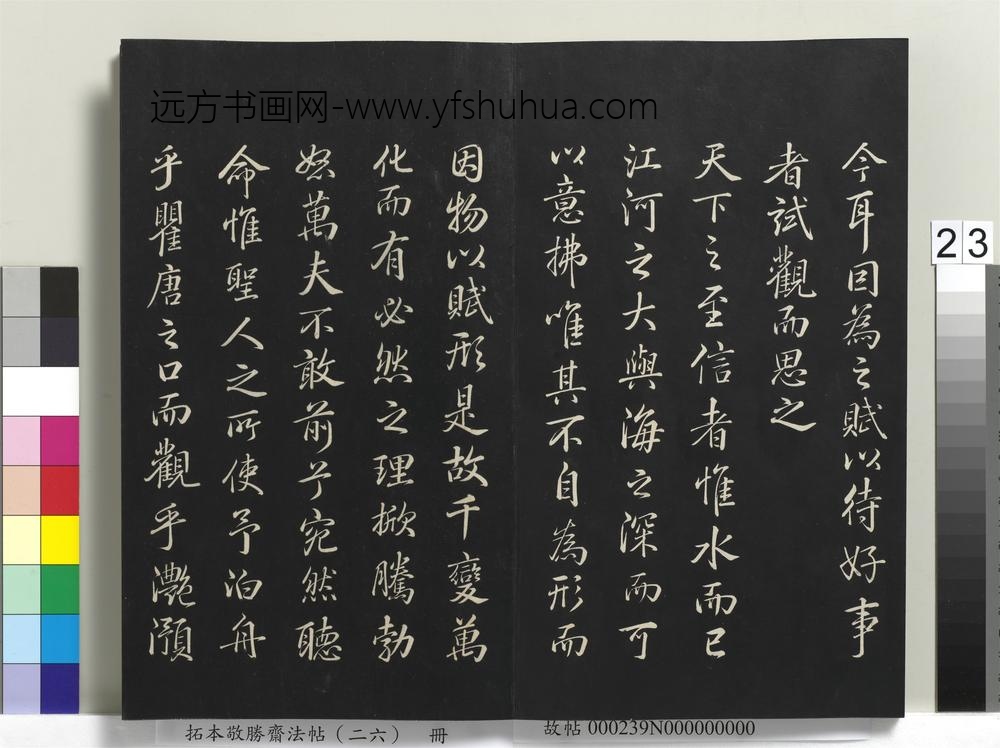 远方书画网-www.yfshuhua.com
今耳因為之賦以待好事
者試觀而思之
天下之至信者惟水而已
江河之大與海之深而可
以意拂唯其不自為形而
因物以賦形是故千變萬
化而有必然之理掀騰勃
怒萬夫不敢前兮宛然聽
命惟聖人之所使予泊舟
乎瞿唐之口而觀乎灔澦
23
拓本敬勝齋法帖（二六） 冊
故帖 000239N000000000